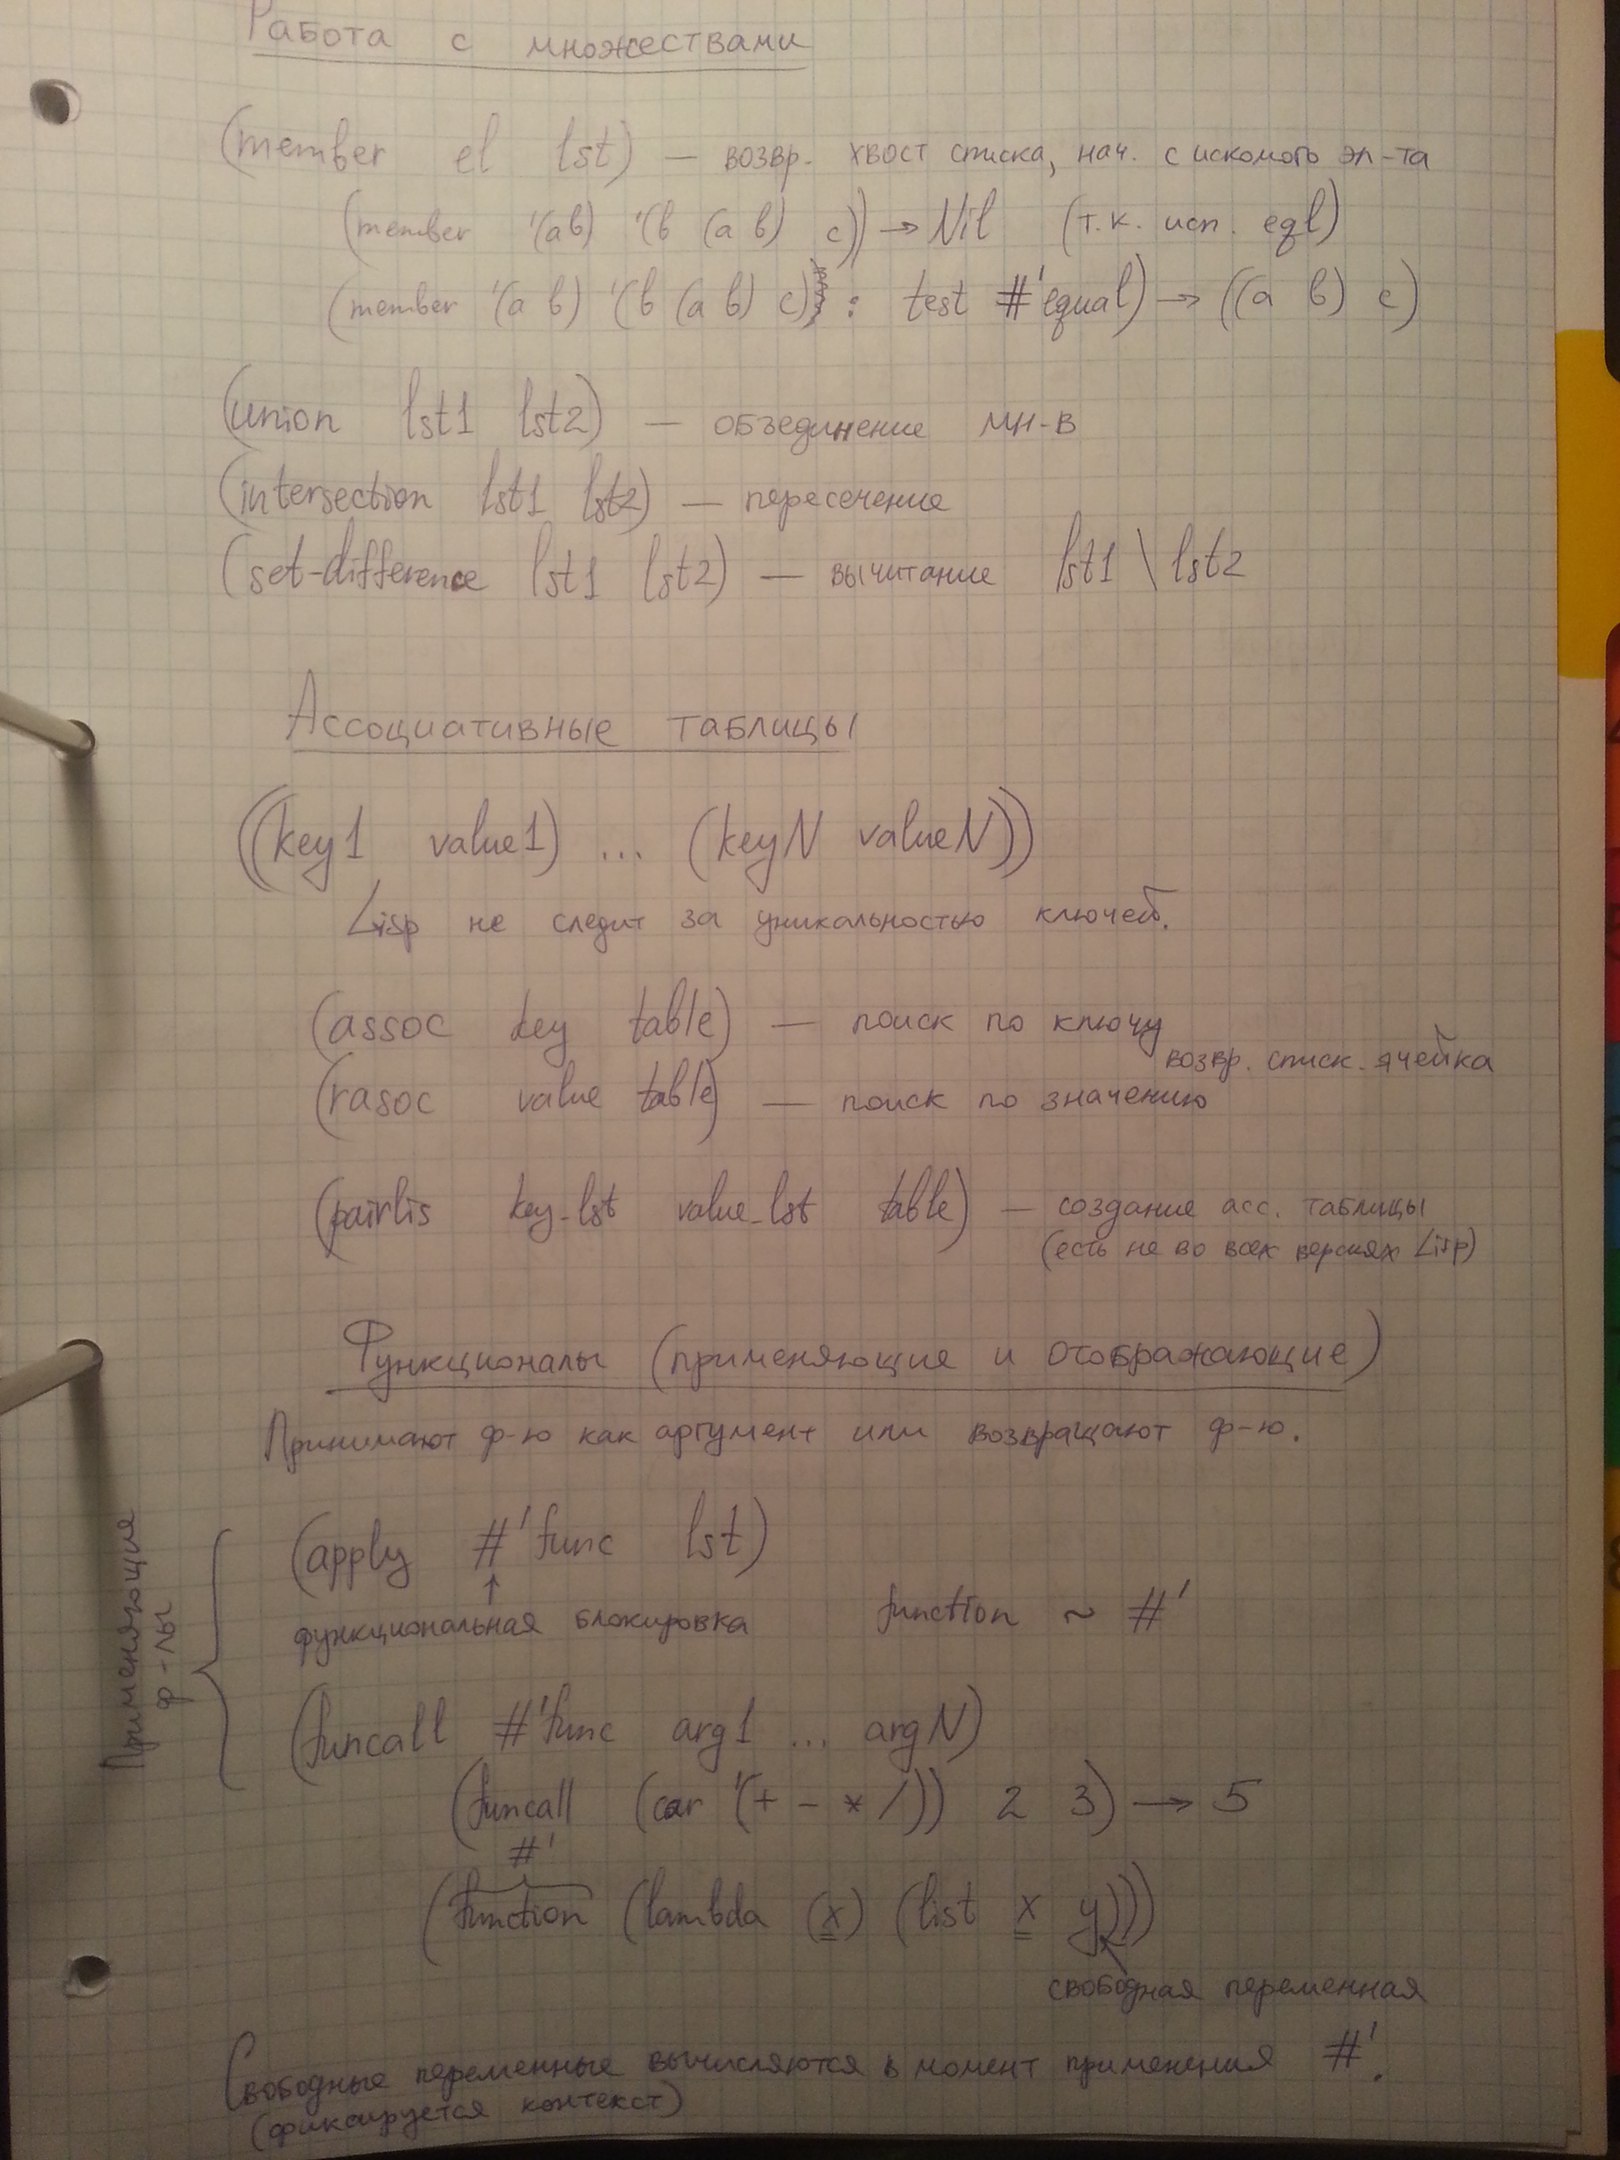 Работа с множествами
(member el lst) — возвр. хвост списка, нач. с искомого эл-та
(member '(a b) '(b (a b) c)) → Nil (т.к. исп. eql)
(member '(a b) '(b (a b) c) : test #'equal) → ((a b) c)
(union lst1 lst2) — объединение мн-в
(intersection lst1 lst2) — пересечение
(set-difference lst1 lst2) — вычитание lst1 \ lst2
Ассоциативные таблицы
((key1 value1) ... (keyN valueN))
Lisp не следит за уникальностью ключей.
(assoc key table) — поиск по ключу
возвр. списк. ячейка
(rasoc value table) — поиск по значению
(pairlis key_lst value_lst table) — создание асс. таблицы
(есть не во всех версиях Lisp)
Функционалы (применяющие и отображающие)
Принимают ф-ю как аргумент или возвращают ф-ю.
Применяющие
ф-лы
(apply #'func lst)
↑
функциональная блокировка function ~ #'
(funcall #'func arg1 ... argN)
(funcall (car '(+ - * /)) 2 3) → 5
#'
(function (lambda (x) (list x y)))
свободная переменная
Свободные переменные вычисляются в момент применения #'.
(фиксируется контекст)